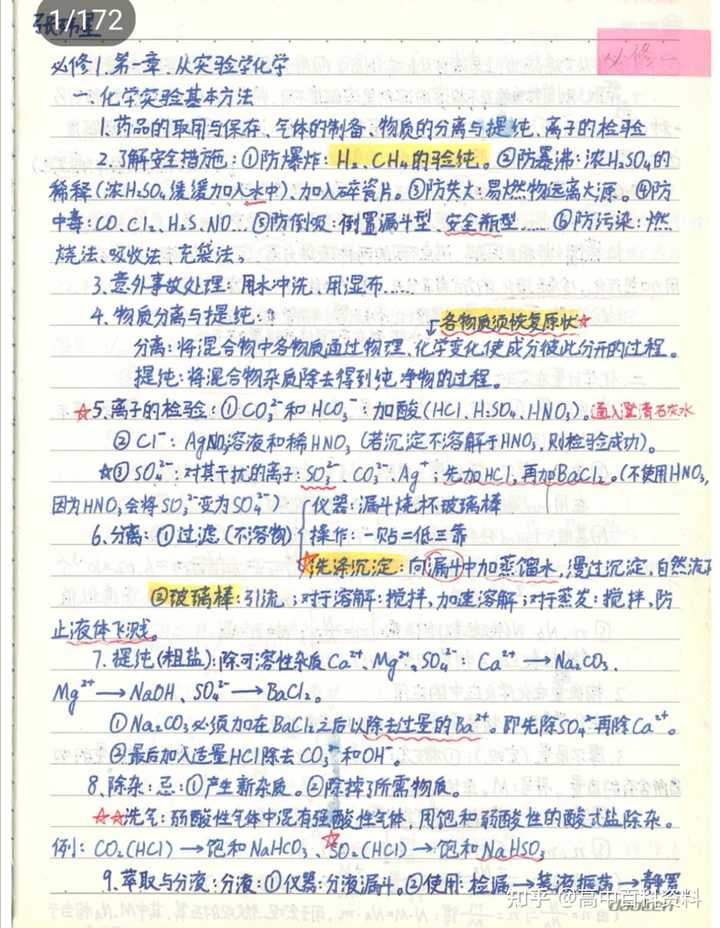 1/172
必修一
必修1.第一章.从实验学化学
一、化学实验基本方法
1.药品的取用与保存、气体的制备、物质的分离与提纯、离子的检验
2.了解安全措施:①防爆炸:H₂、CH₄的验纯。②防暴沸:浓H₂SO₄的
稀释(浓H₂SO₄缓缓加入水中)、加入碎瓷片。③防失火:易燃物远离火源。④防
中毒:CO、Cl₂、H₂S、NO…⑤防倒吸:倒置漏斗型、安全瓶型……⑥防污染:燃
烧法、吸收法、充袋法、
3.意外事故处理:用水冲洗、用湿布……
4.物质分离与提纯:
各物质须恢复原状☆
分离:将混合物中各物质通过物理、化学变化使成分彼此分开的过程。
提纯:将混合物杂质除去得到纯净物的过程。
☆5.离子的检验:①CO₃²⁻和HCO₃⁻:加酸(HCl、H₂SO₄、HNO₃)。通入澄清石灰水
②Cl⁻:AgNO₃溶液和稀HNO₃(若沉淀不溶解于HNO₃,则检验成功)。
☆③SO₄²⁻:对其干扰的离子:SO₃²⁻、CO₃²⁻、Ag⁺;先加HCl,再加BaCl₂。(不使用HNO₃,
因为HNO₃会将SO₃²⁻变为SO₄²⁻)
仪器:漏斗烧杯玻璃棒
6.分离:①过滤(不溶物) 操作:一贴二低三靠
☆洗涤沉淀:向漏斗中加蒸馏水,漫过沉淀,自然流
②玻璃棒:引流;对于溶解:搅拌,加速溶解;对于蒸发:搅拌,防
止液体飞溅。
7.提纯(粗盐):除可溶性杂质Ca²⁺、Mg²⁺、SO₄²⁻:Ca²⁺→Na₂CO₃、
Mg²⁺→NaOH、SO₄²⁻→BaCl₂。
①Na₂CO₃必须加在BaCl₂之后以除去过量的Ba²⁺。即先除SO₄²⁻再除Ca²⁺。
②最后加入适量HCl除去CO₃²⁻和OH⁻。
8.除杂:忌:①产生新杂质。②除掉了所需物质。
☆☆洗气:弱酸性气体中混有强酸性气体,用饱和弱酸性的酸式盐除杂。
例:CO₂(HCl)→饱和NaHCO₃、☆SO₂(HCl)→饱和NaHSO₃
9.萃取与分液:分液:①仪器:分液漏斗。②使用:检漏→装液振荡→静置
知乎 @高中百科资料